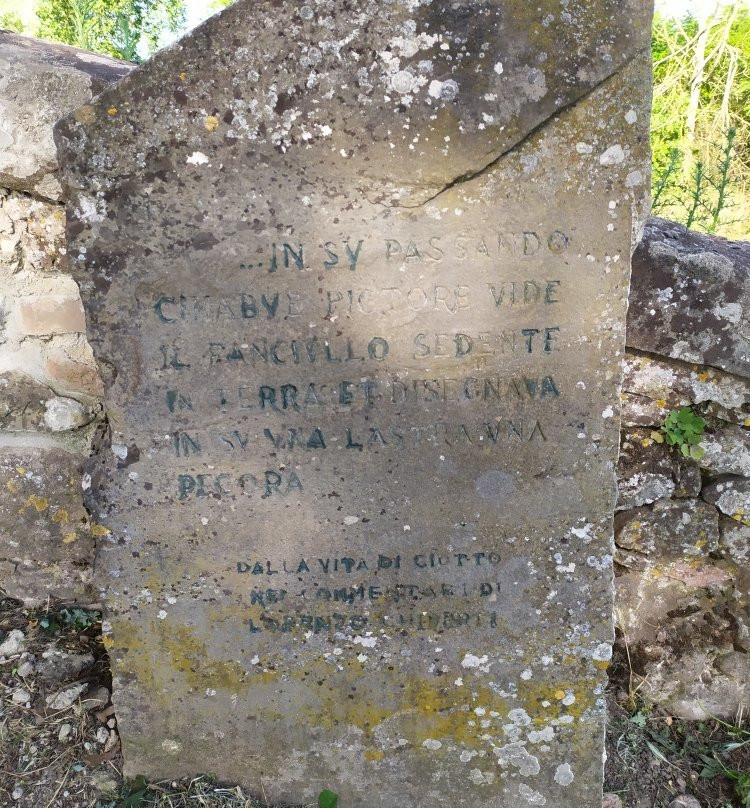 ...IN SV PASSANDO
CIMABVE PICTORE VIDE
IL FANCIVLLO SEDENTE
IN TERRA ET DISEGNAVA
IN SV VNA LASTRA VNA
PECORA
DALLA VITA DI GIOTTO
NEI COMMENTARI DI
LORENZO GHIBERTI